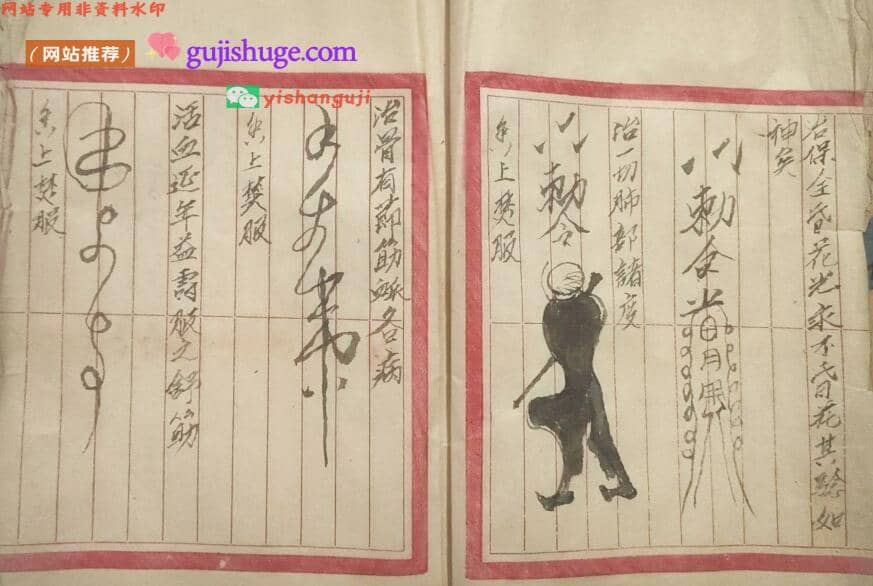 网站专用非资料水印
（网站推荐）
gujishuge.com
yishanguji
治保全昏花光永不昏花其驗如
神矣
勅令
治一切肺部諸度
勅令
上焚服
治骨有節筋脈各病
上焚服
活血延年益壽服之舒筋
上焚服